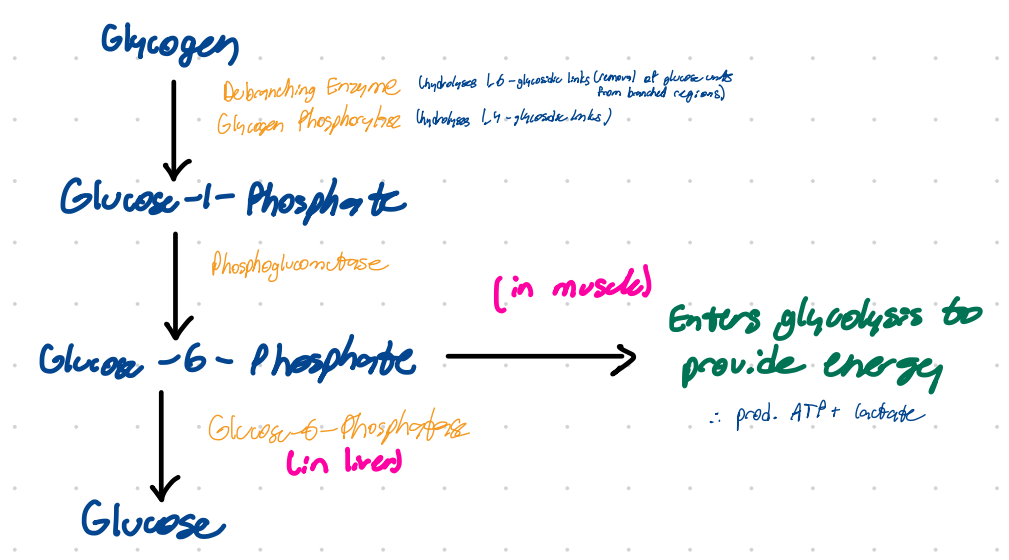 Glycogen
Debranching Enzyme (hydrolyses 1,6-glycosidic links (removal of glucose units
from branched regions)
Glycogen Phosphorylase (hydrolyses 1,4-glycosidic links)
Glucose-1-Phosphate
Phosphoglucomutase
(in muscle)
Enters glycolysis to
provide energy
∴ prod. ATP + lactate
Glucose-6-Phosphate
Glucose-6-Phosphatase
(in liver)
Glucose